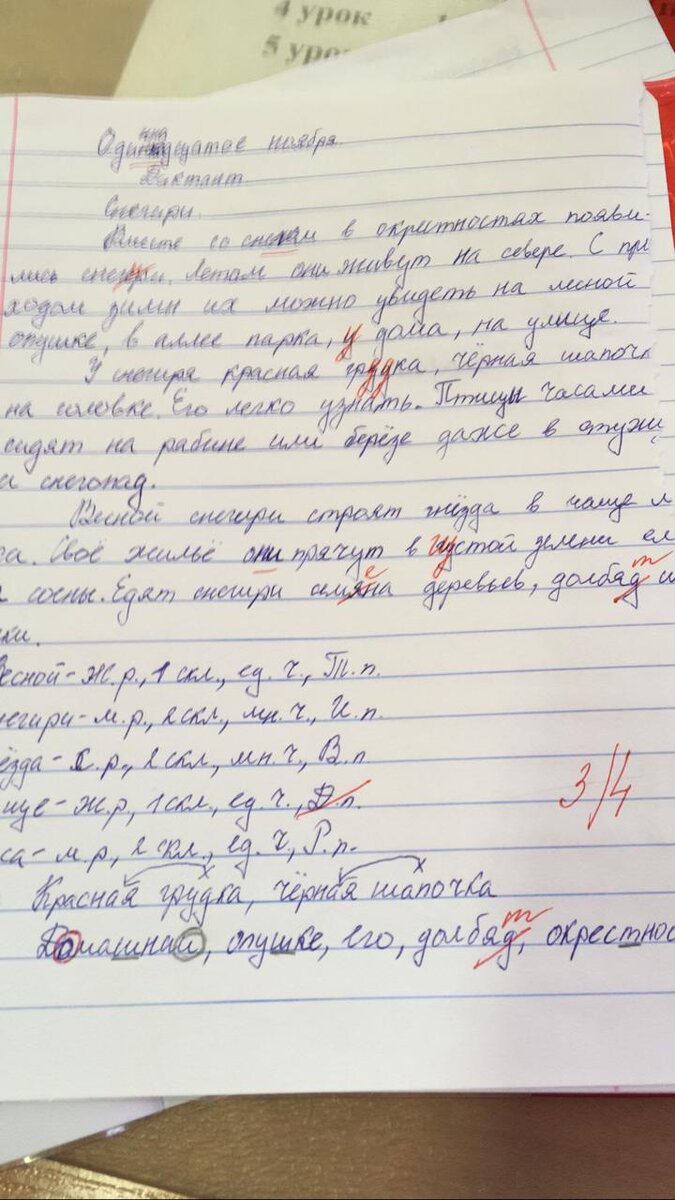 4 урок
5 уро
Одиннадцатое ноября.
Диктант.
Снегири.
Вместе со снегом в окрестностах появи-
лись снегири. Летом они живут на севере. С при
ходом зимы их можно увидеть на лесной
опушке, в аллее парка, у дома, на улице.
У снегиря красная грудка, чёрная шапочк
на головке. Его легко узнать. Птицы часами
сидят на рабине или берёзе даже в стужу
и снегопад.
Весной снегири строят гнёзда в чаще л
са. Своё жильё они прячут в густой зелени ел
сосны. Едят снегири семяна деревьев, долбяд
е
т
ки.
Весной - Ж.р., 1 скл., ед. ч., Т.п.
негири - м.р., 2 скл., мн. ч., И.п.
ёзда - с.р., 2 скл., мн. ч., В.п
ице - ж.р., 1 скл., ед. ч., Д.п.
са - м.р, 2 скл., ед. ч, Р.п.
3/4
х х
Красная грудка, чёрная шапочка
т
Домашнай, опушке, его, долбяд, окрестнос